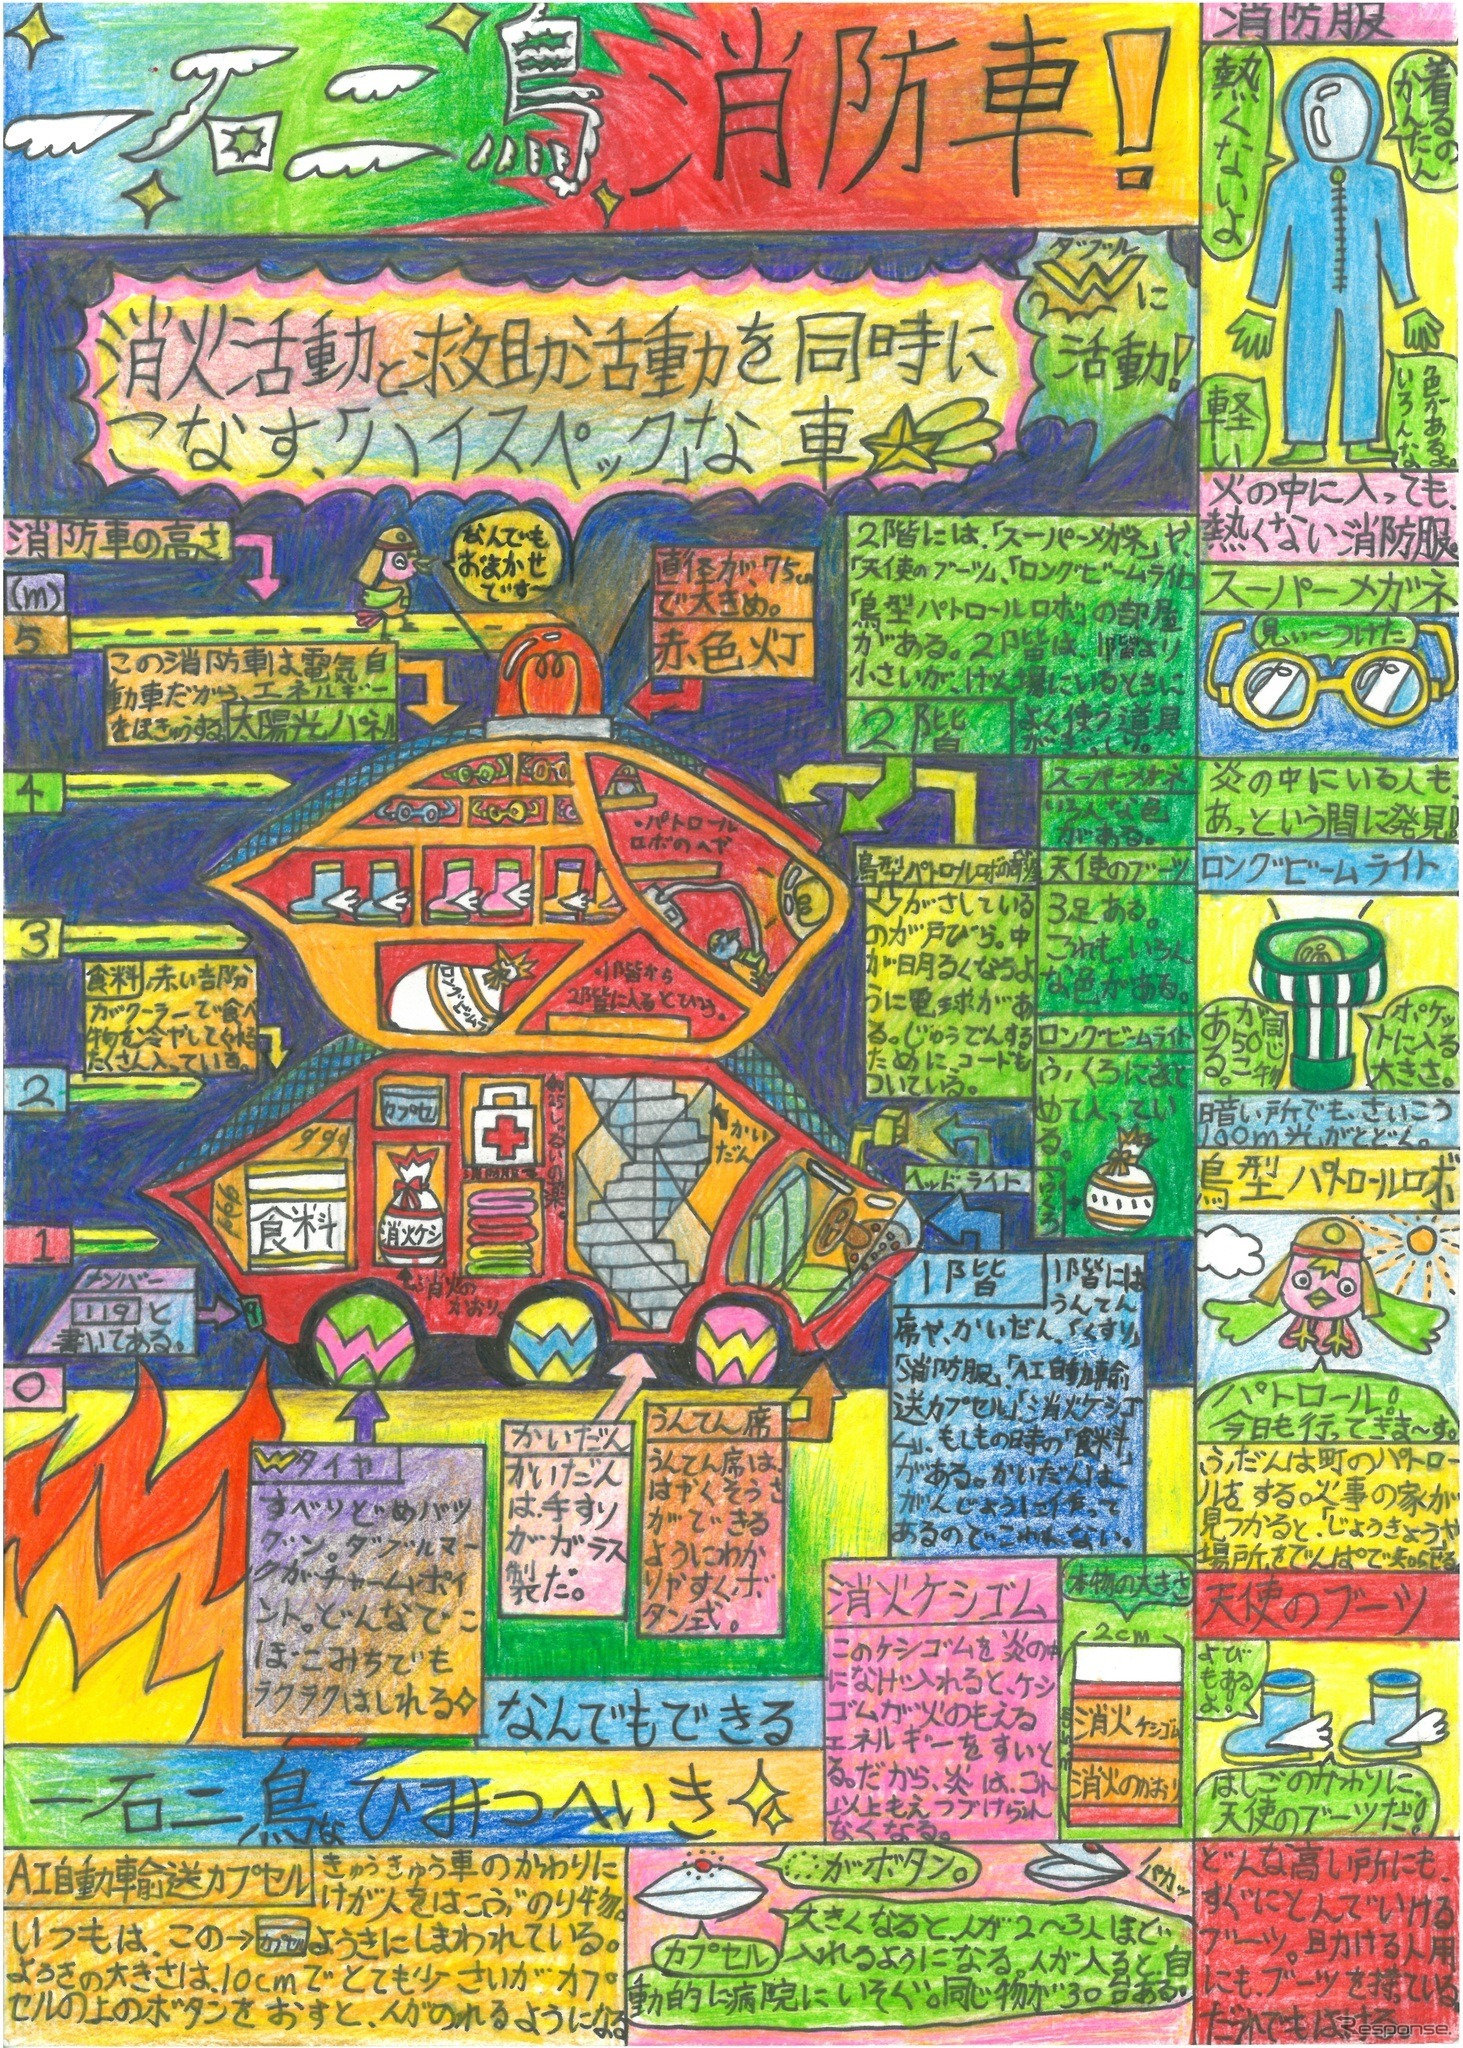 一石二鳥消防車!
消火活動と救助活動を同時に
こなす、「ハイスペック」な車
ダブル
Wに
活動!
消防服
着るの
かんたん
熱くないよ
軽い
色がある。
いろんな
火の中に入っても、
熱くない消防服。
スーパーメガネ
見ぃーつけた
炎の中にいる人も、
あっという間に発見!
ロングビームライト
同じ物
が50こ
ある。
ポケッ
トに入る
大きさ。
暗い所でも、さいこう
100m光がとどく。
鳥型パトロールロボ
パトロール!
今日も行ってきま〜す。
ふだんは町のパトロー
ルをする。火事の家が
見つかると、「じょうきょう」や
場所をでんぱで知らせる
天使のブーツ
よび
もある
よ。
はしごのかわりに、
天使のブーツだ!
どんな高い所にも、
すぐにとんでいける
ブーツ。助ける人用
にも、ブーツを持っている
だれでもはける。
消防車の高さ
(m)
5
4
3
2
1
0
なんでも
おまかせ
です〜
直径が、75cm
で大きめ。
赤色灯
この消防車は電気自
動車だから、エネルギー
をほきゅうする太陽光パネル
2階には、「スーパーメガネ」や、
「天使のブーツ」、「ロングビームライト」
「鳥型パトロールロボ」の部屋
がある。2階は、1階より
小さいが、げん場にいるときに
よく使う道具
がぎっしり。
2階
スーパーメガネ
いろんな色
がある。
天使のブーツ
3足ある。
これも、いろん
な色がある。
ロングビームライト
ふくろにまと
めて入ってい
る。
ふくろ
鳥型パトロールロボの部屋
がさしている
のが戸びら。中
が明るくなるよ
うに電球があ
る。じゅうでんする
ために、コードも
ついている。
・パトロール
ロボのへや
ロングビームライト
・1階から
2階に入るとびら。
食料 赤い部分
がクーラーで食べ
物を冷やしてくれる
たくさん入っている。
カプセル
食料
消火ケシ
消火の
かおり。
消防服
かい
だん
ヘッドライト
ナンバー
119と
書いてある。
1階
1階には
うんてん
席や、かいだん、「くすり」
「消防服」、「AI自動車輸
送カプセル」「消火ケシゴ
ム」、もしもの時の「食料」
がある。かいだんは、
がんじょうに作って
あるのでこわれない。
Wタイヤ
すべりどめバツ
グン。ダブルマー
クがチャームポイ
ント。どんなでこ
ぼこみちでも
ラクラクはしれる
かいだん
かいだん
は、手すり
がガラス
製だ。
うんてん席
うんてん席は、
はやくそうさ
ができる
ようにわか
りやすく、ボ
タン式。
消火ケシゴム
このケシゴムを炎の中
になげ入れると、ケシ
ゴムが火のもえる
エネルギーをすいと
る。だから、炎は、これ
以上もえつづけられ
なくなる。
本物の大きさ
2cm
消火ケシゴム
消火のかおり
なんでもできる
一石二鳥なひみつへいき
AI自動車輸送カプセル
きゅうきゅう車のかわりに
けが人をはこぶのり物。
いつもは、この→カプセルようきにしまわれている。
ようきの大きさは、10cmでとても小さいが カプ
セルの上のボタンをおすと、人がのれるようになる
がボタン。
パカッ
カプセル
大きくなると、人が2〜3人ほど
入れるようになる。人が入ると、自
動的に病院にいそぐ。同じ物が30台ある。
Response.